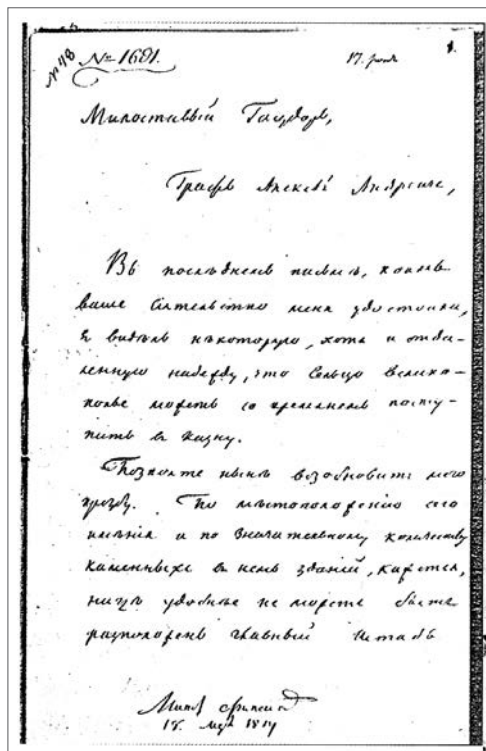 № 1681.
17.
1.
Милостивый Государь,
Графъ Алексѣй Андреевичъ,
Въ послѣднемъ письмѣ, коимъ
ваше Сіятельство меня удостоили,
я видѣлъ нѣкоторую, хотя и отда-
ленную надежду, что Сельцо Велико-
полье можетъ со временемъ посту-
пить въ казну.
Позвольте нынѣ возобновить мою
прозьбу. По мѣстоположенію сего
имѣнія и по значительному количеству
каменныхъ въ немъ зданій, кажется,
нигдѣ удобнѣе не можетъ быть
расположенъ главный штабъ